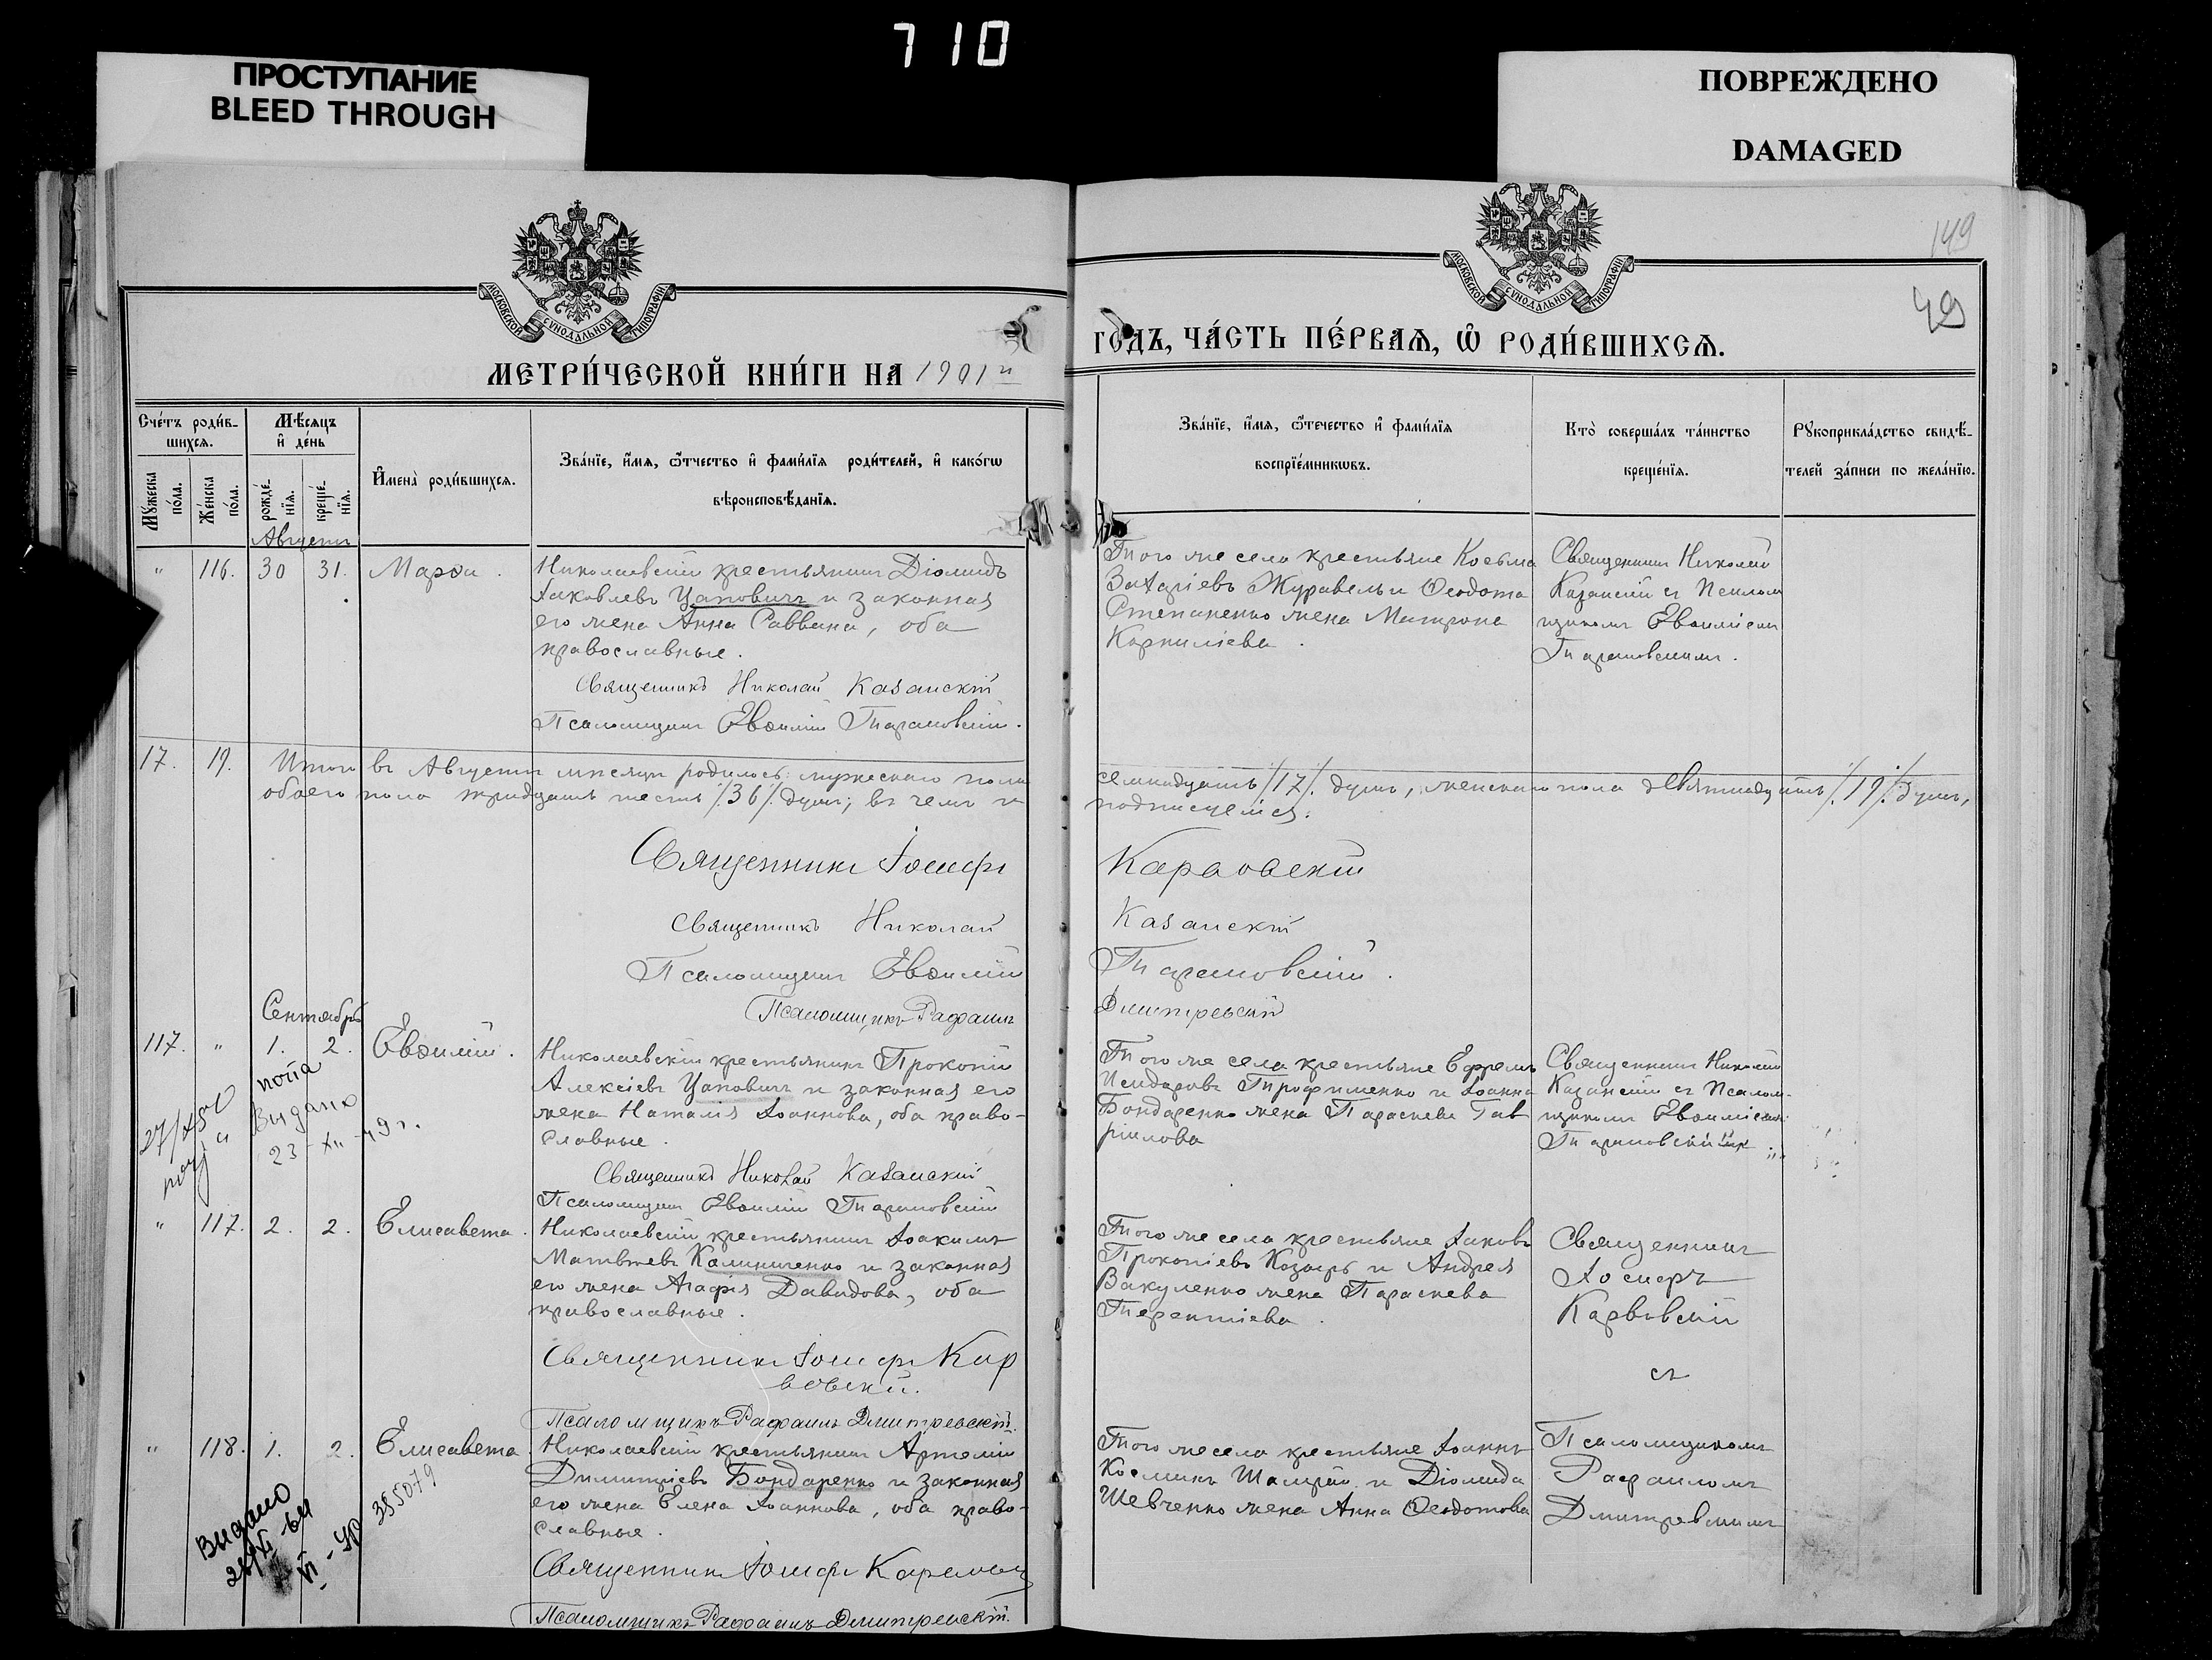 710
ПРОСТУПАНИЕ
BLEED THROUGH
ПОВРЕЖДЕНО
DAMAGED
МОСКОВСКОЙ СѴНОДАЛЬНОЙ ТИПОГРАФІИ
МОСКОВСКОЙ СѴНОДАЛЬНОЙ ТИПОГРАФІИ
149
49
МЕТРИ́ЧЕСКОЙ КНИ́ГИ НА 1901 й
ГОДЪ, ЧА́СТЬ ПЕ́РВАѦ, Ѡ҆ РОДИ́ВШИХСѦ.
Сче́тъ роди́в-
шихсѧ.
Мѣ́сѧцъ
и҆ де́нь
Мꙋ́жеска по́ла.
Же́нска по́ла.
рожде́-нїѧ.
креще́-нїѧ.
И҆мена̀ роди́вшихсѧ.
Зва́нїе, и҆́мѧ, ѻ҆́тчество и҆ фами́лїѧ родителей, и҆ како́гѡ
вѣроисповѣ́данїѧ.
Зва́нїе, и҆́мѧ, ѻ҆те́чество и҆ фами́лїѧ
воспрїе́мникѡвъ.
Кто̀ соверша́лъ та́инство
креще́нїѧ.
Рꙋкоприкла́дство свидѣ́-
телей за́писи по жела́нїю.
Августъ
" 116. 30 31. Марѳа.
Николаевскій крестьянинъ Діомидъ
Іаковлевъ Цаповичъ и законная
его жена Анна Саввина, оба
православные.
Священникъ Николай Казанскій
Псаломщикъ Евѳимій Тарановскій.
Того же села крестьяне Косьма
Захаріевъ Журавель и Ѳеодота
Степаненко жена Матрона
Корниліева.
Священникъ Николай
Казанскій съ Псалом
щикомъ Евѳиміемъ
Тарановскимъ.
17. 19. Итого въ Августѣ мѣсяцѣ родилось: мужескаго пола семнадцать /17/. душъ, женскаго пола девятнадцать /.19/. душъ,
обоего пола тридцать шесть /.36/. душъ; въ чемъ и подписуемся.
Священникъ Іосифъ Карвовскій
Священникъ Николай Казанскій
Псаломщикъ Евѳимій Тарановскій.
Псаломщикъ Рафаилъ Дмитревскій
Сентябрь
117. " 1. 2. Евѳимій.
Николаевскій крестьянинъ Прокопій
Алексіевъ Цаповичъ и законная его
жена Наталія Іоаннова, оба право-
славные.
Священникъ Николай Казанскій
Псаломщикъ Евѳимій Тарановскій
Того же села крестьяне Ефремъ
Исидоровъ Трофименко и Іоанна
Бондаренко жена Параскева Гав
ріилова
Священникъ Николай
Казанскій съ Псалом-
щикомъ Евѳиміемъ
Тарановскимъ
Видано
23-XII-49 г.
" 117. 2. 2. Елисавета.
Николаевскій крестьянинъ Іоакимъ
Матвѣевъ Калиниченко и законная
его жена Агафія Давидова, оба
православные.
Священникъ Іосифъ Кар
вовскій.
Псаломщикъ Рафаилъ Дмитревскій.
Того же села крестьяне Іаковъ
Прокопіевъ Козырь и Андрея
Вакуленко жена Параскева
Терентіева.
Священникъ
Іосифъ
Карвовскій
съ
" 118. 1. 2. Елисавета
Николаевскій крестьянинъ Артемій
Димитріевъ Бондаренко и законная
его жена Елена Іоаннова, оба право-
славные.
Священникъ Іосифъ
Псаломщикъ Рафаилъ Дмитревскій.
Того же села крестьяне Іоаннъ
Косминъ и Діомида
Шевченко жена Анна Ѳеодотова
Псаломщикомъ
Рафаиломъ
Дмитревскимъ
Видано
385079